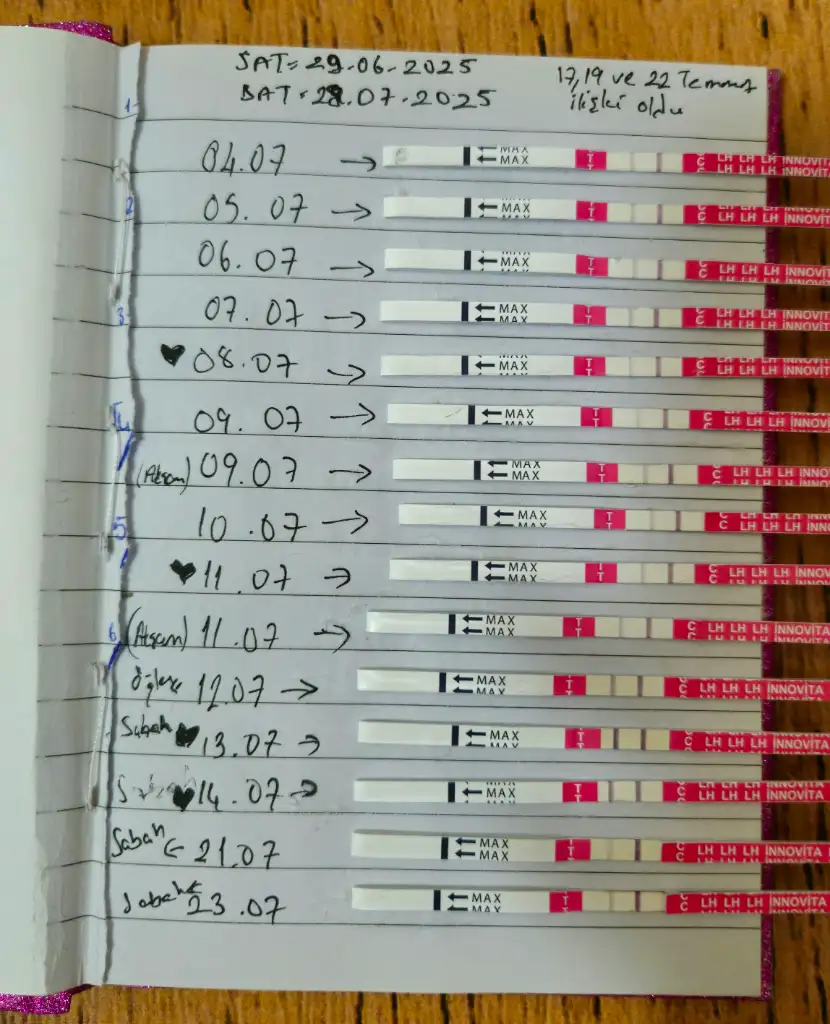 SAT= 29.06.2025
BAT= 28.07.2025
17,19 ve 22 Temmuz
ilişki oldu
1
04.07 → ← MAX ← MAX T T C LH LH LH INNOVİT
2
05.07 → ← MAX ← MAX T T C LH LH LH INNOVİT
06.07 → ← MAX ← MAX T T C LH LH LH INNOVİT
3
07.07 → ← MAX ← MAX T T C LH LH LH INNOVİT
♥ 08.07 → ← MAX ← MAX T T C LH LH LH INNOVİT
09.07 → ← MAX ← MAX T T C LH LH LH INNOVİT
(Akşam) 09.07 → ← MAX ← MAX T T C LH LH LH INNO
5
10.07 → ← MAX ← MAX T T C LH LH LH INN
♥ 11.07 → ← MAX ← MAX T T C C LH LH LH INNO
6
(Akşam) 11.07 → ← MAX ← MAX T T C C LH LH LH INNOVİTA
Öğlen 12.07 → ← MAX ← MAX T T C C LH LH LH INNOVİTA
Sabah ♥ 13.07 → ← MAX ← MAX T T C C LH LH LH INNOVİTA
♥ 14.07 → ← MAX ← MAX T T C C LH LH LH INNOVİTA
Sabah ← 21.07 ← MAX ← MAX T T C C LH LH LH INNOVİTA
Sabah ← 23.07 ← MAX ← MAX T T C C LH LH LH INNOVİTA